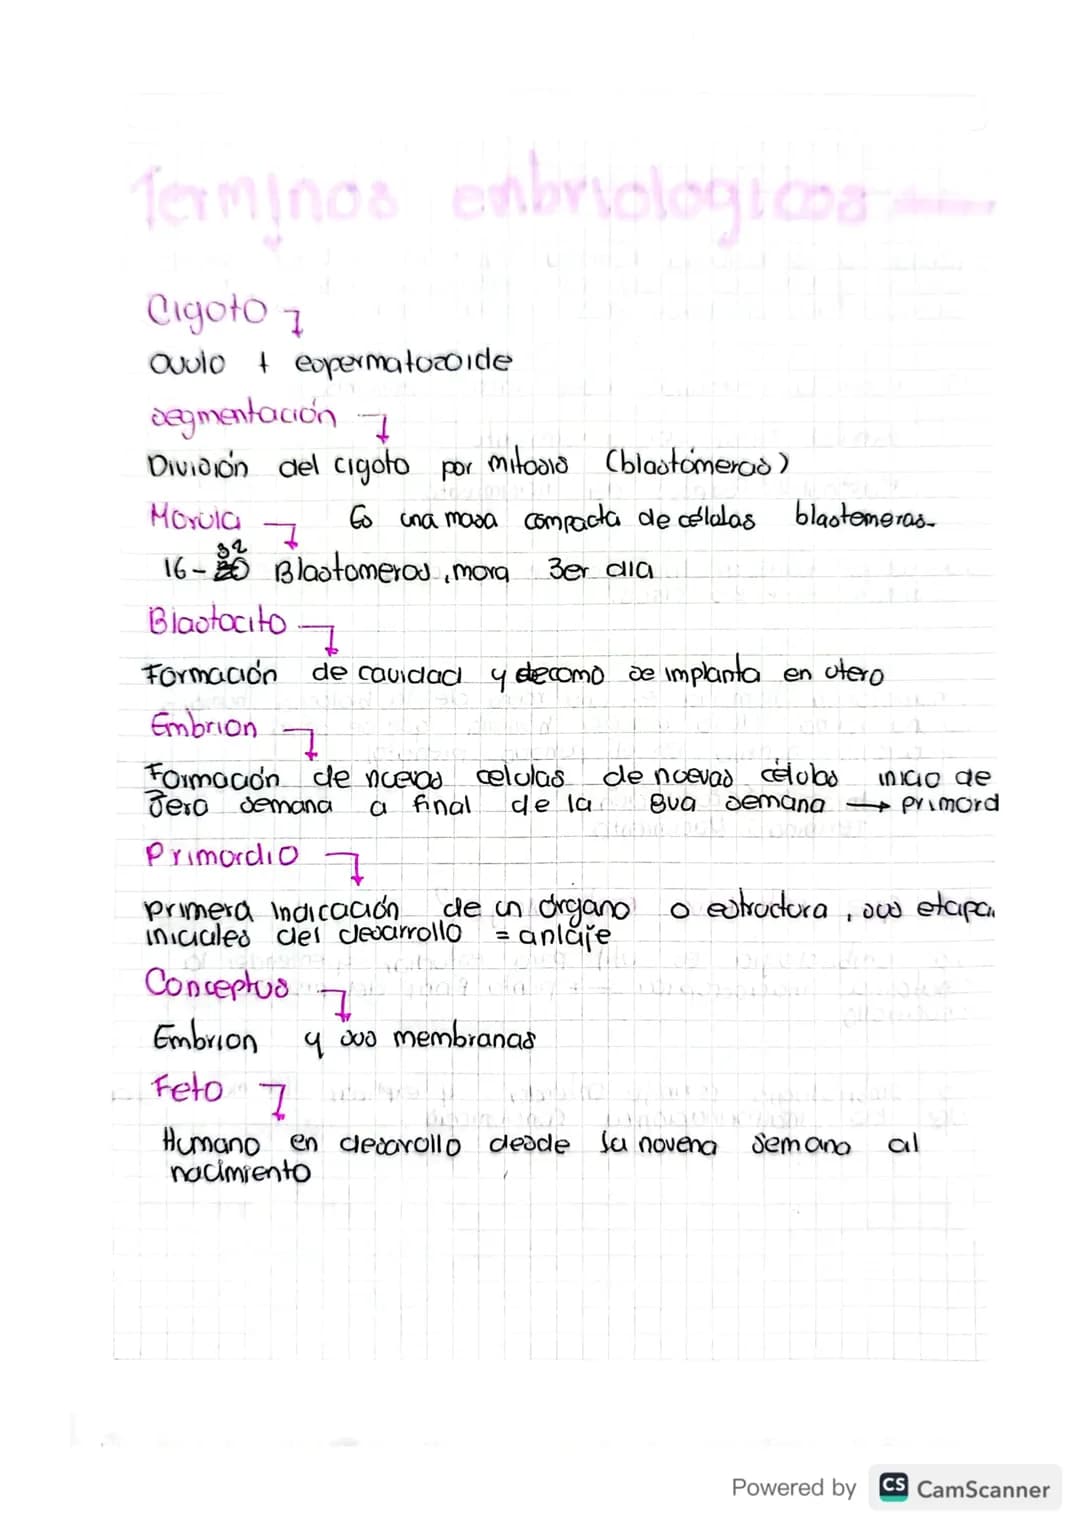 Terminos enbriologicos
Cigoto
Ovulo + espermatozoide
segmentación
División del cigoto por mitosis (blastómeras)
Morula Es una masa compacta de células blastomeras.
16-32 Blastomeros, mora 3er dia
Blastocito
Formación de cavidad y decomo se implanta en utero
Embrion
Formación de nuevas celulas de nuevas células inicio de
3era semana a final de la 8va semana → primord
Primordio
primera indicación de un órgano o estructura, sus etapa
iniciales del desarrollo = anlaje
Conceptus
Embrion y sus membranas
Feto
Humano en desarollo desde la novena semana al
nacimiento
Powered by CS CamScanner